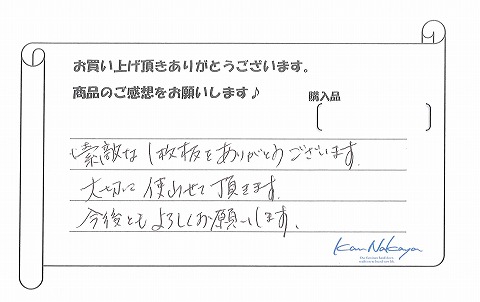 お買い上げ頂きありがとうございます。
商品のご感想をお願いします♪
購入品
素敵な1枚板をありがとうございます。
大切に使わせて頂きます。
今後ともよろしくお願いします。
Kan Nakaya